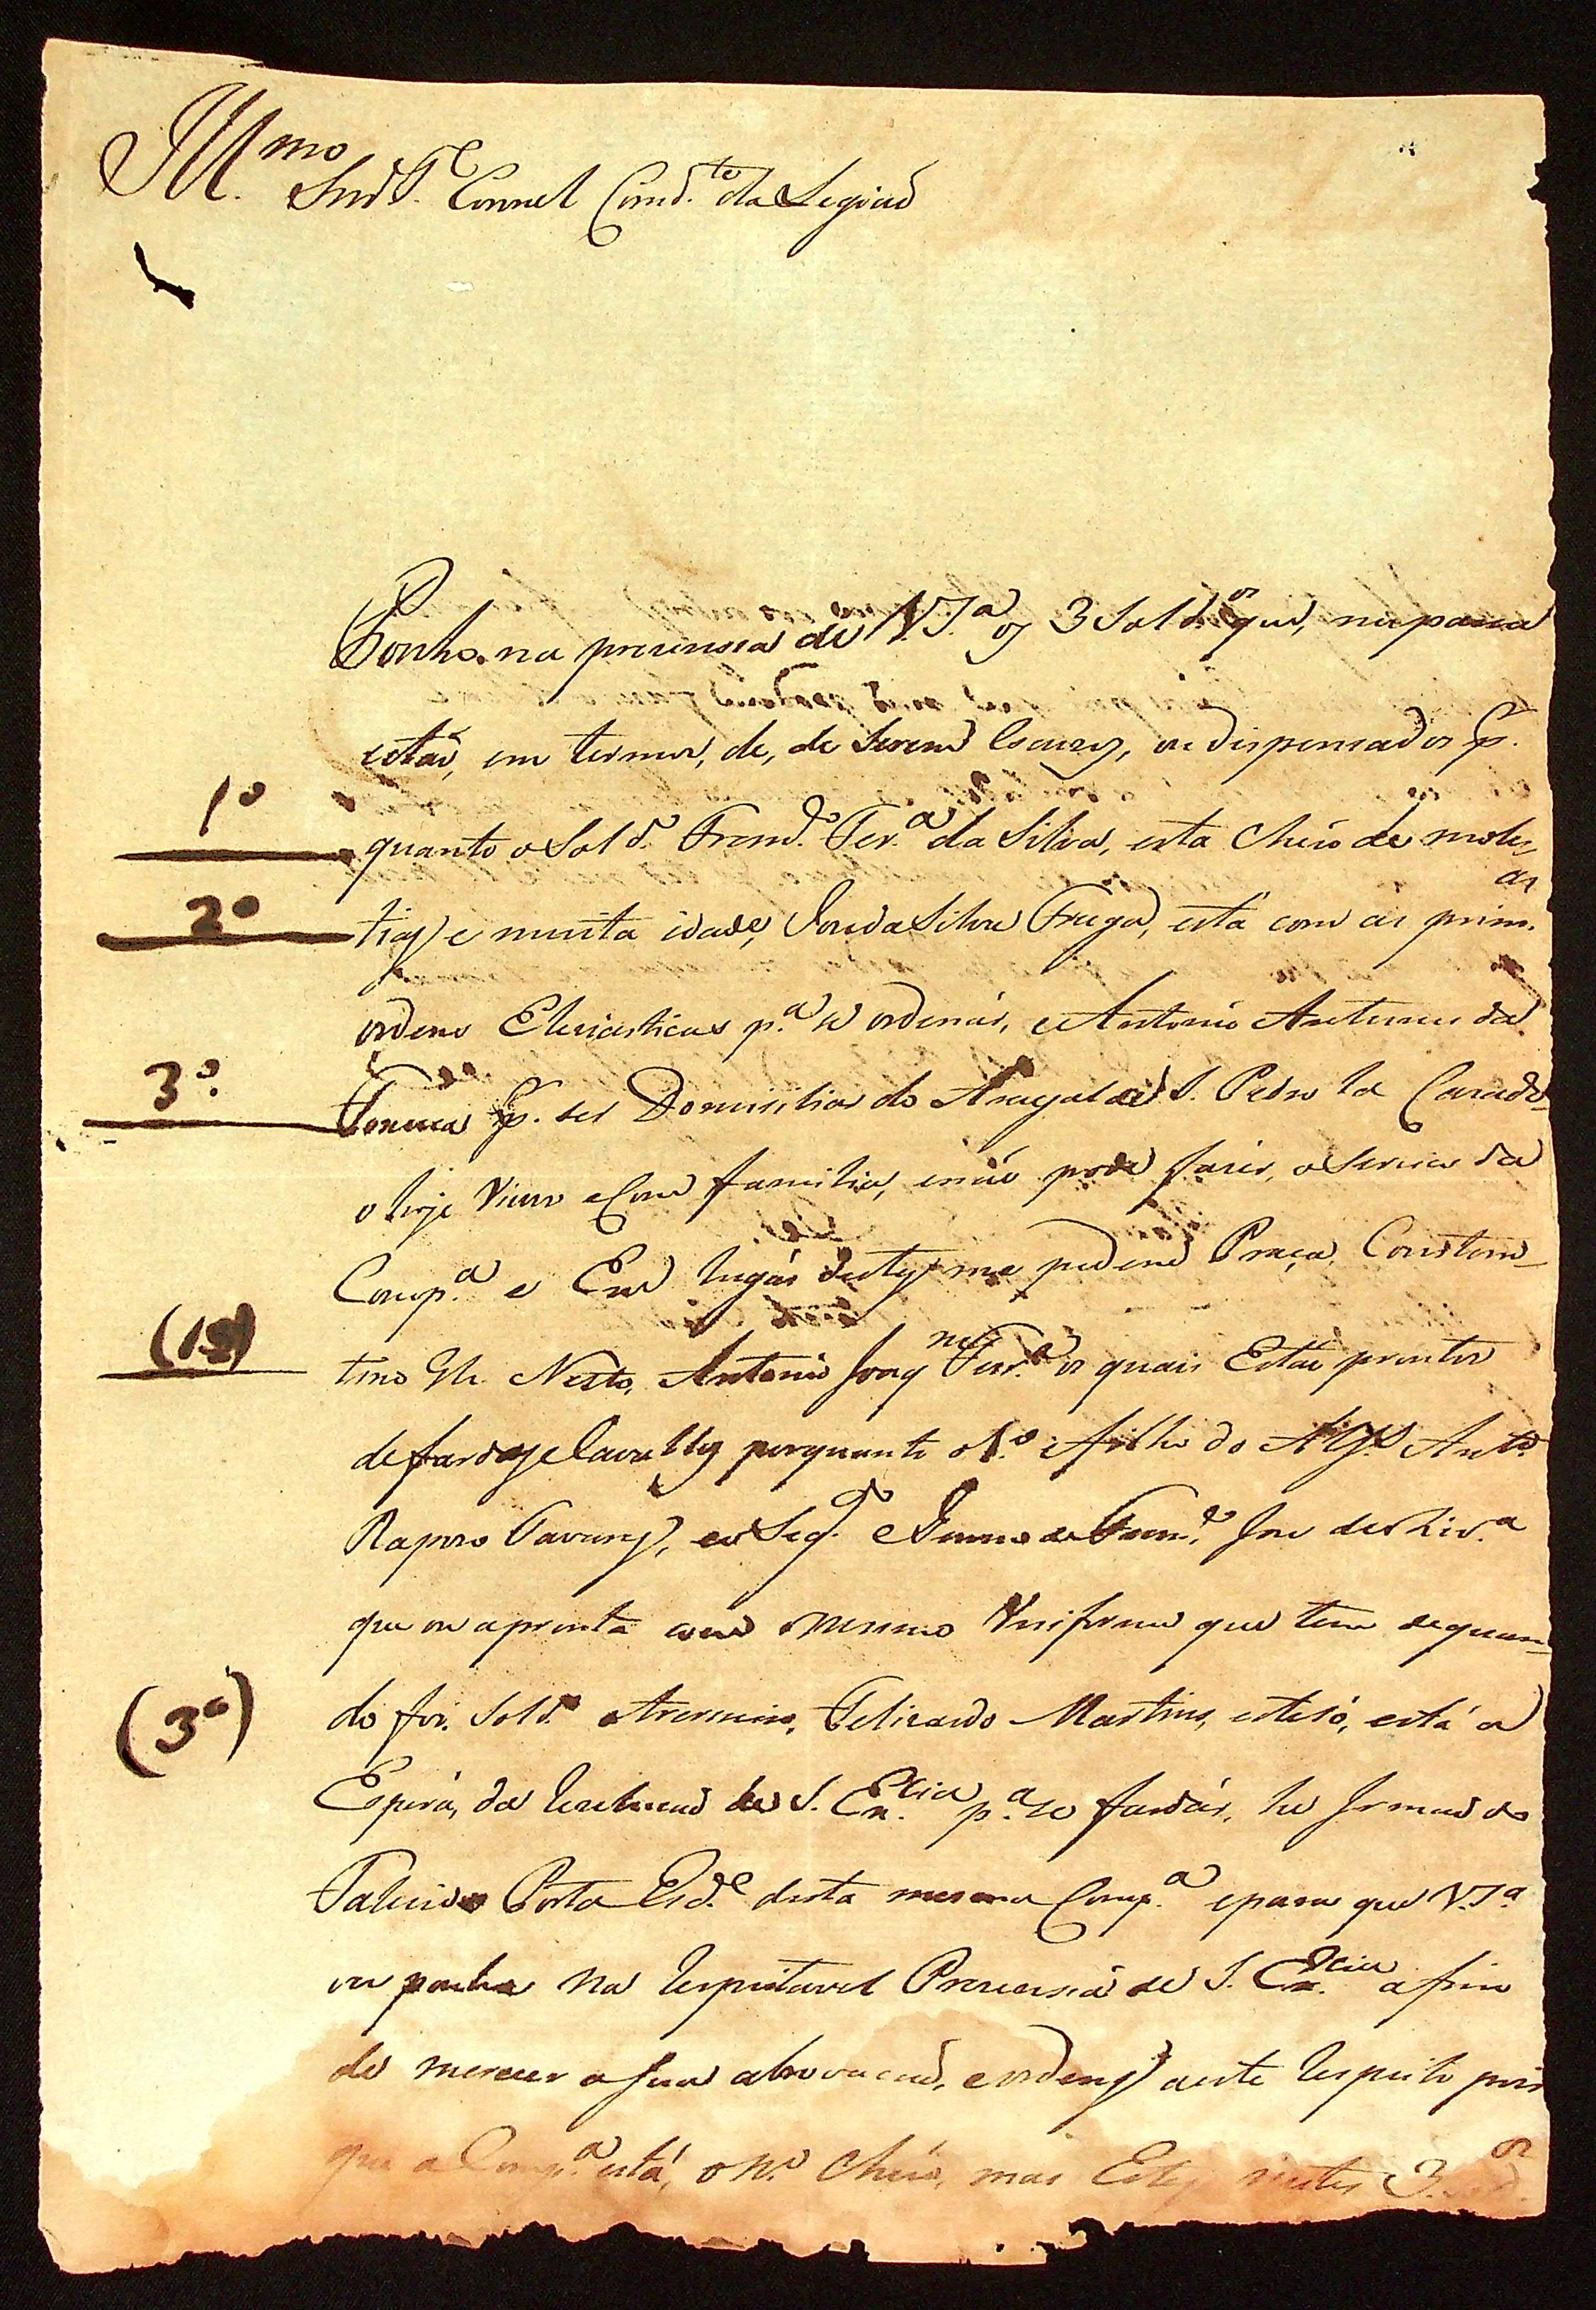 Illmo Snr T.e Coronel Comd.te da Legiaõ
Ponho na prezensa de V.S.a os 3 Sold.os que, me parese
estaõ, em termos, de, de serem Escuzos, ou dispensados p.
1o
quanto o Sold.o Fran.co Fer.a da Silva, esta cheio de moles
2o
tias e muita idade, Joze da Silva Fraga, está com as prim.as
ordens Eleziasticas p.a se ordenár, e Antonio Antunes da
3o
Fonseca p. ser Domisiliar do Arayal de S. Pedro la Cazado
o hoje Viuvo e Com familia, e naõ pode fazer, o serviso da
Comp.a e Em lugár destes me pedem Praça, Constan
(1o)
tino Neto, Antonio Joaq.m Ferr.a os quais Estaõ prontos
de fardas e Cavallos porquanto o 1.o é filho do Alf.s Ant.o
Rapozo Tavares, e o Seg.do é Genro de Fran.co Joze de Oliv.a
que o apronta com o mesmo Uniforme que tem de quan
(3o)
do foi Sold.o e terseiro, Felizardo Martins, este só, está a
Espera, da rezolusaõ de S. Ex.cia p.a se fardár, he Irmaõ do
Falecido Porta Esd.e desta mesma Comp.a e para que V.S.a
os ponha na respeitavel Prezensa de S. Ex.cia a fim
de mereser a sua abrovacaõ, e ordens a este respeito pois
que a Comp.a está, o N.o cheio, mas Estes 3